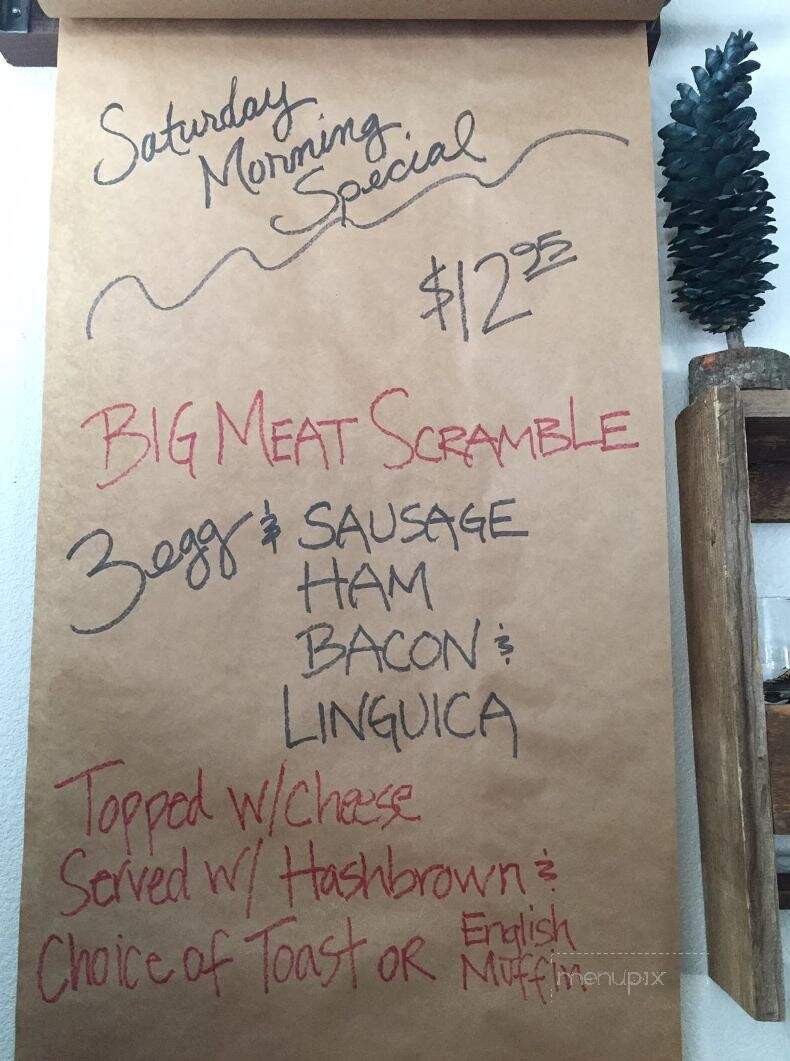 Saturday
Morning
Special
$12.95
BIG MEAT SCRAMBLE
3 egg & SAUSAGE
HAM
BACON &
LINGUICA
Topped w/Cheese
Served w/ Hashbrown &
Choice of Toast OR English
Muffin
menupix